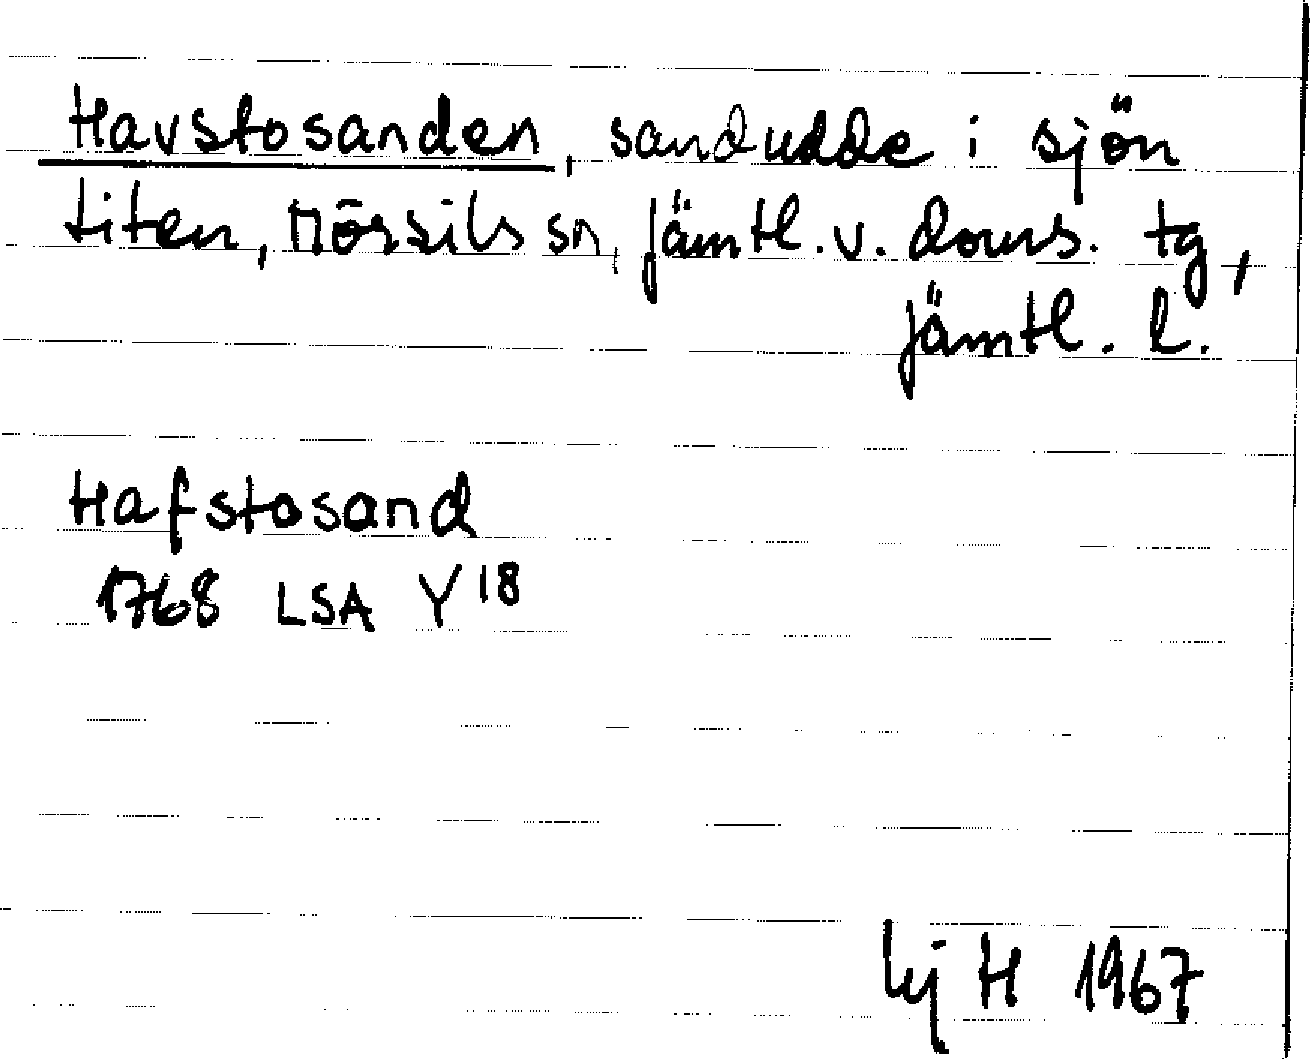 Havstosanden, sandudde i sjön
Liten, Mörsils sn, Jämtl. v. doms. tg,
Jämtl. l.
Hafstosand
1768 LSA Y18
H 1967